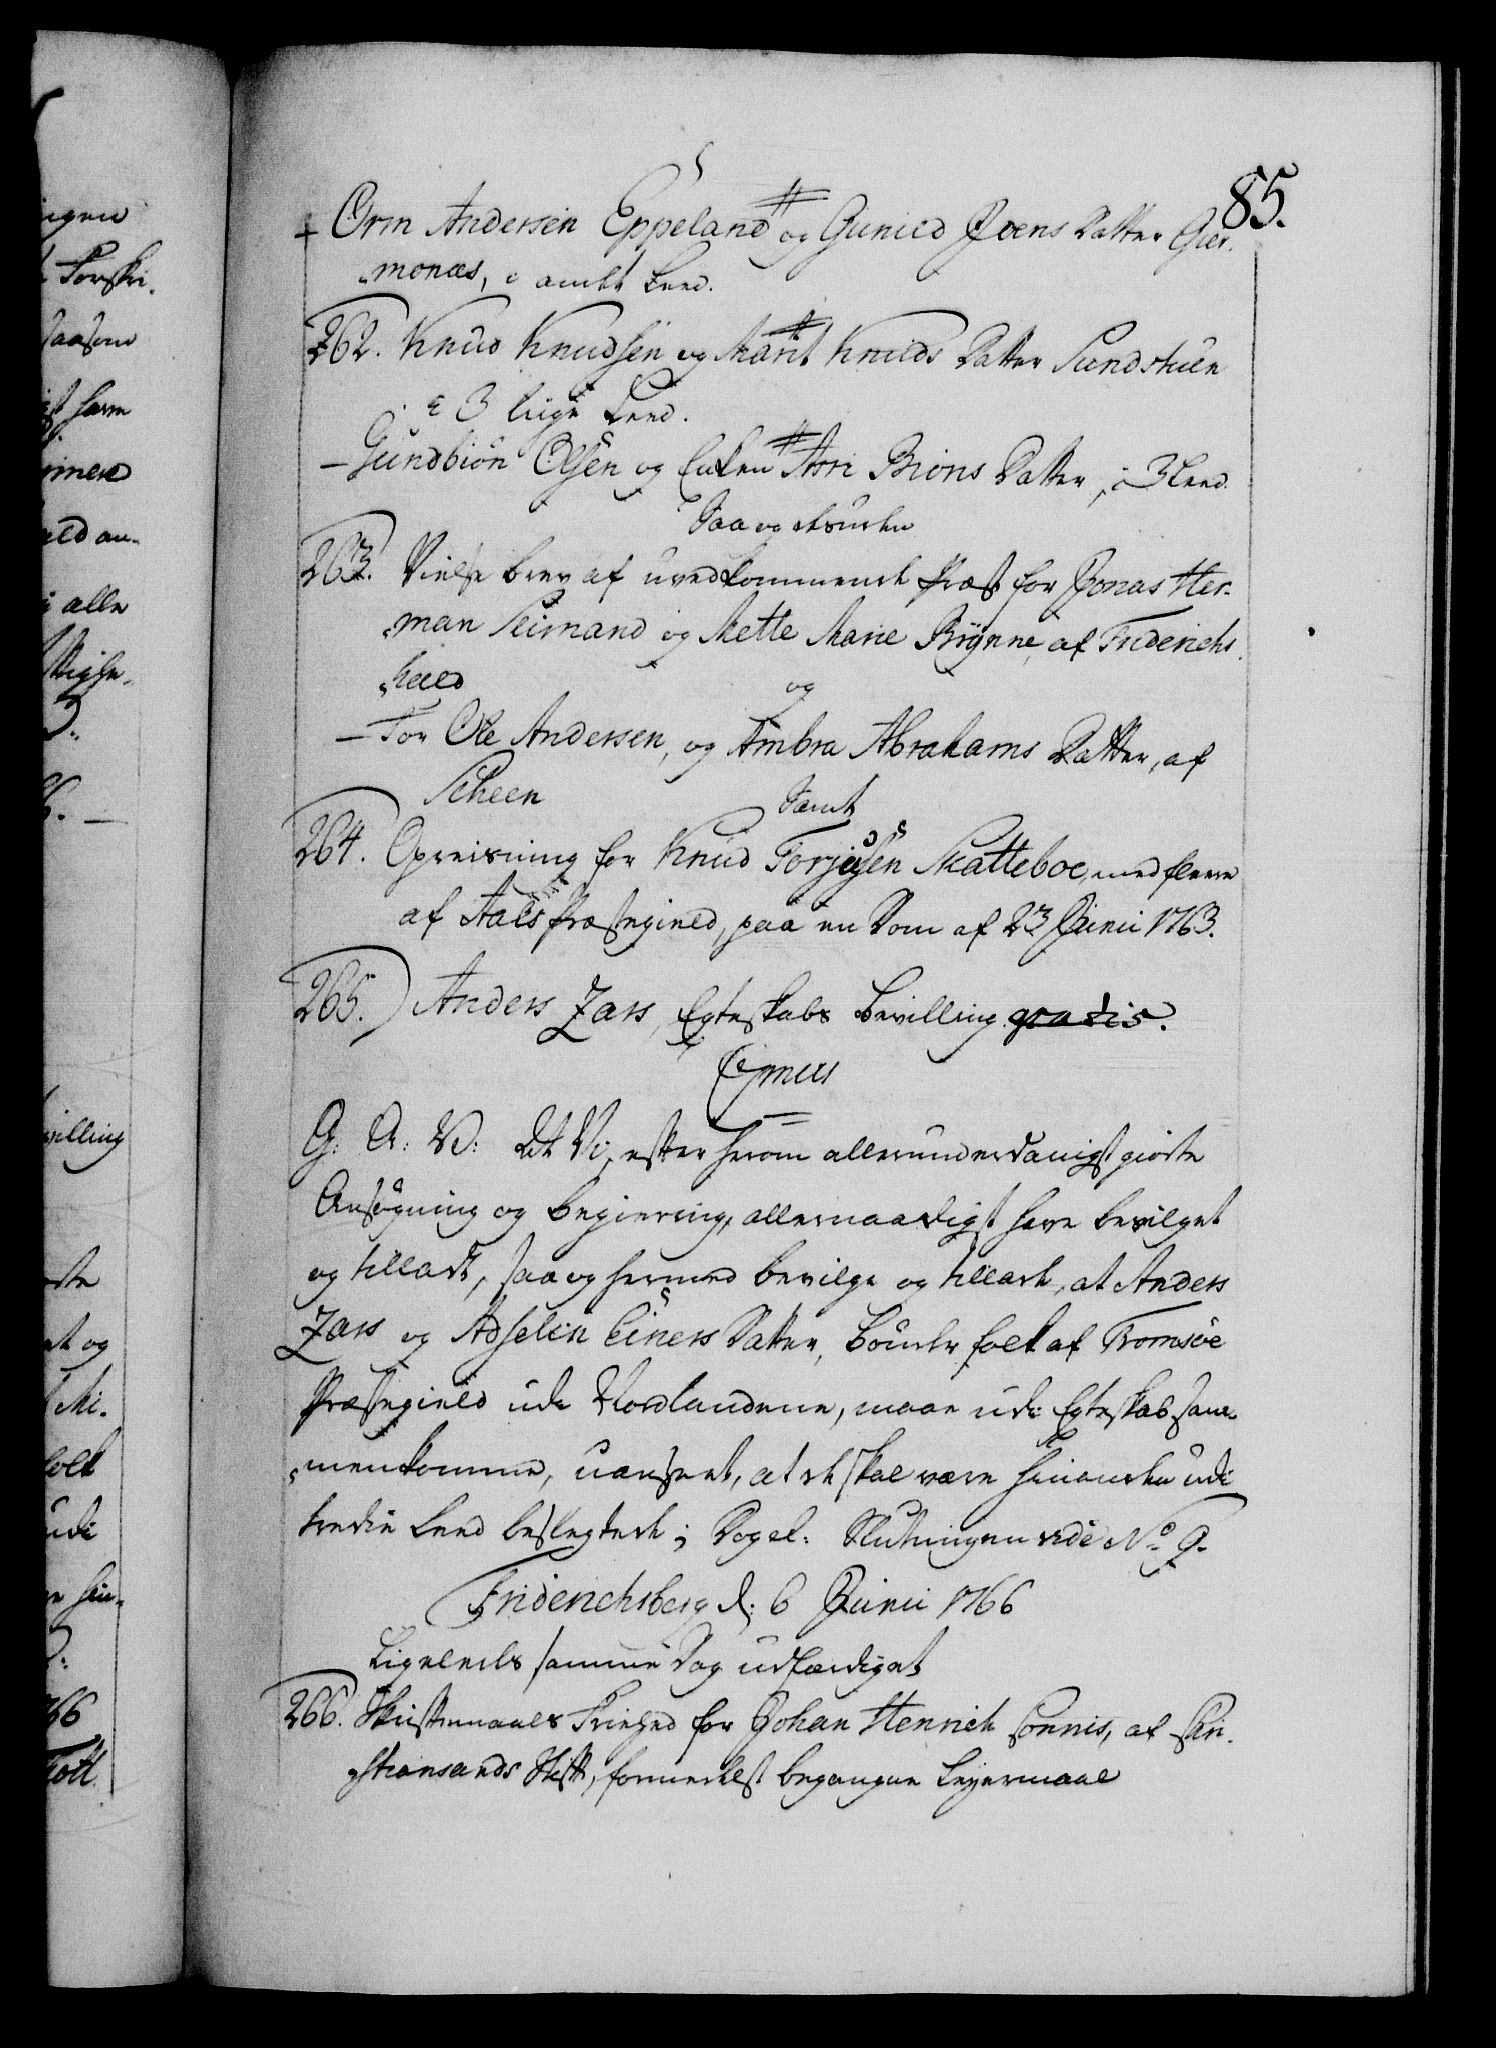 85.
Orm Andersen Eppeland og Gunild Joens Datter Gier-
monæs, i andet Leed.
262. Knud Knudsen og Marit Knuds Datter Sundstuen
i 3 liige Leed.
– Gundbiön Olsen og Enken Asri Biöns Datter, i 3 Leed.
Saa og desuden
263. Vielse brev af uvedkommende Præst for Jonas Her-
man Leimand og Mette Marie Brynne, af Friderichs
hald og
– For Ole Andersen, og Ambra Abrahams Datter, af
Scheen Samt
264. Opreisning for Knud Torjusen Skatteboe, med fleere
af Aals Præstegield, paa en Dom af 23 Junii 1763.
265. Anders Zars, Egteskabs Bevilling gratis.
G: A: V: At Vi, efter herom allerunderdanigst giorte
Ansögning og begiering, allernaadigst have bevilget
og tilladt, saa og hermed bevilge og tillade, at Anders
Zars og Adselin Einers Datter, bönder folk af Tromsöe
Præstegield udi Nordlandene, maae udi Egteskab sam-
menkomme, uanseet, at de skal være hinanden udi
tredie Leed beslegtede; Dog el: Slutningen vide No 9.
Friderichsberg d: 6 Junii 1766
Ligeledes samme Dag udfærdiget
266. Skriftemaals Friehed for Johan Henrich Sonnis, af Chri-
stiansands Stift, formedelst begangne Leyermaal